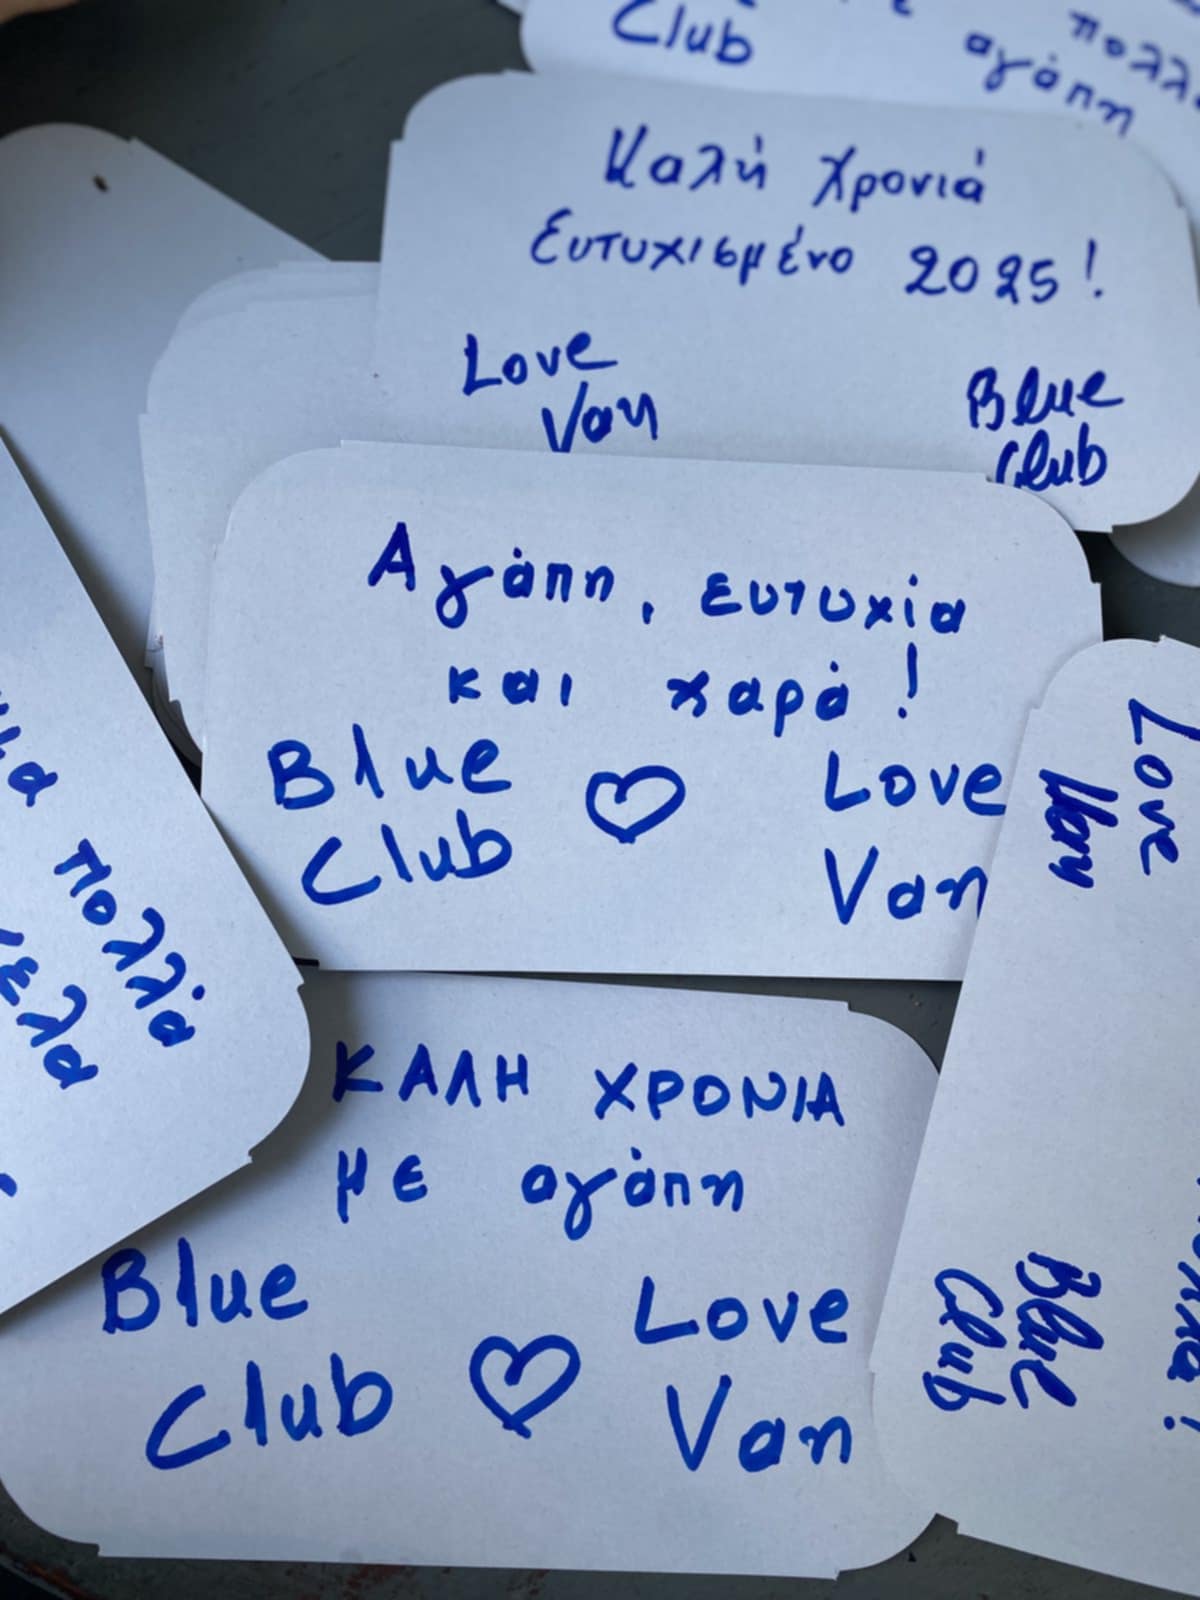 Club
πολλ
αγάπη
Καλή Χρονιά
Ευτυχισμένο 2025!
Love
Van
Blue
Club
Αγάπη, ευτυχία
και χαρά!
Blue
Club
Love
Van
Love
Van
Blue
Club
πολλά
έλα
ΚΑΛΗ ΧΡΟΝΙΑ
με αγάπη
Blue
Club
Love
Van